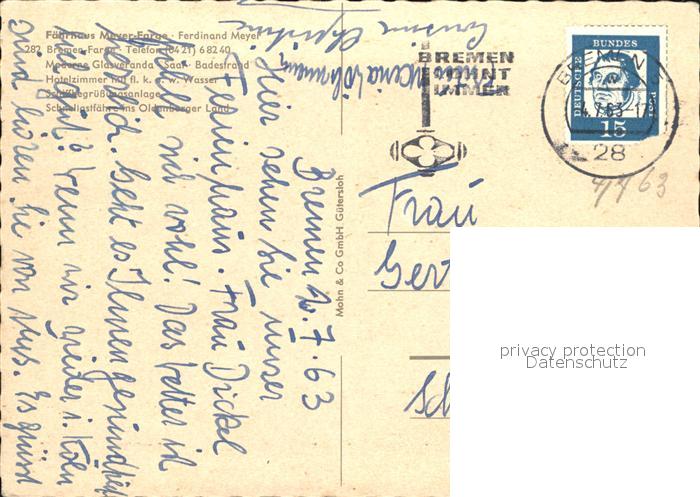 Fährhaus Meyer-Farge · Ferdinand Meyer
282 Bremen-Farge · Telefon (0421) 68240
Moderne Glasveranda · Saal · Badestrand
Hotelzimmer mit fl. k. u. w. Wasser
Schiffsbegrüßungsanlage
Schnellgastfähre ins Oldenburger Land
Bremen 2.7.63
Hier sehen Sie unser
Ferienhaus. Frau Dickel
wohl! Das Wetter ist
Geht es Ihnen gesundheit
gut? Wenn wir wieder i. Köln
sind hören Sie von uns. Es grüsst
Mohn & Co GmbH. Gütersloh
BREMEN
KOMMT
IMMER
DEUTSCHE
BUNDES
POST
15
BREMEN
4.7.63-17
28
4/7 63
Frau
Ger
Sch
privacy protection
Datenschutz